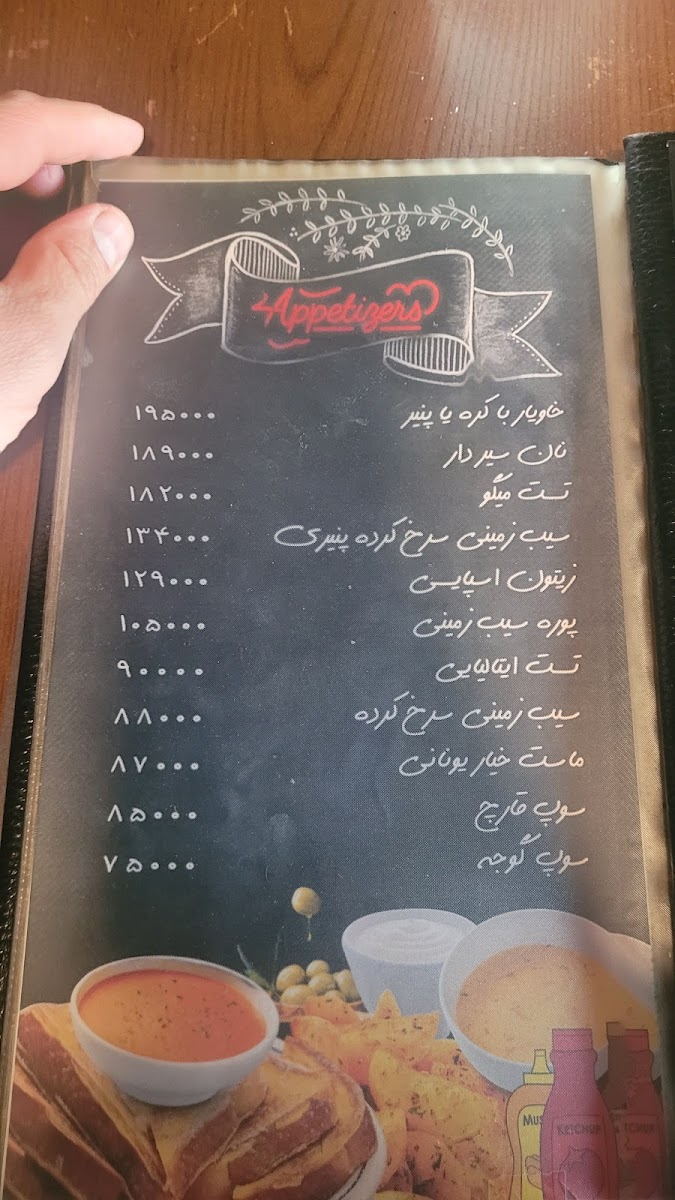 Appetizers
خاویار با کره یا پنیر ۱۹۵۰۰۰
نان سیر دار ۱۸۹۰۰۰
تست میگو ۱۸۲۰۰۰
سیب زمینی سرخ کرده پنیری ۱۳۴۰۰۰
زیتون اسپایسی ۱۲۹۰۰۰
پوره سیب زمینی ۱۰۵۰۰۰
تست ایتالیایی ۹۰۰۰۰
سیب زمینی سرخ کرده ۸۸۰۰۰
ماست خیار یونانی ۸۷۰۰۰
سوپ قارچ ۸۵۰۰۰
سوپ گوجه ۷۵۰۰۰
MUS
KETCHUP
TCHUP